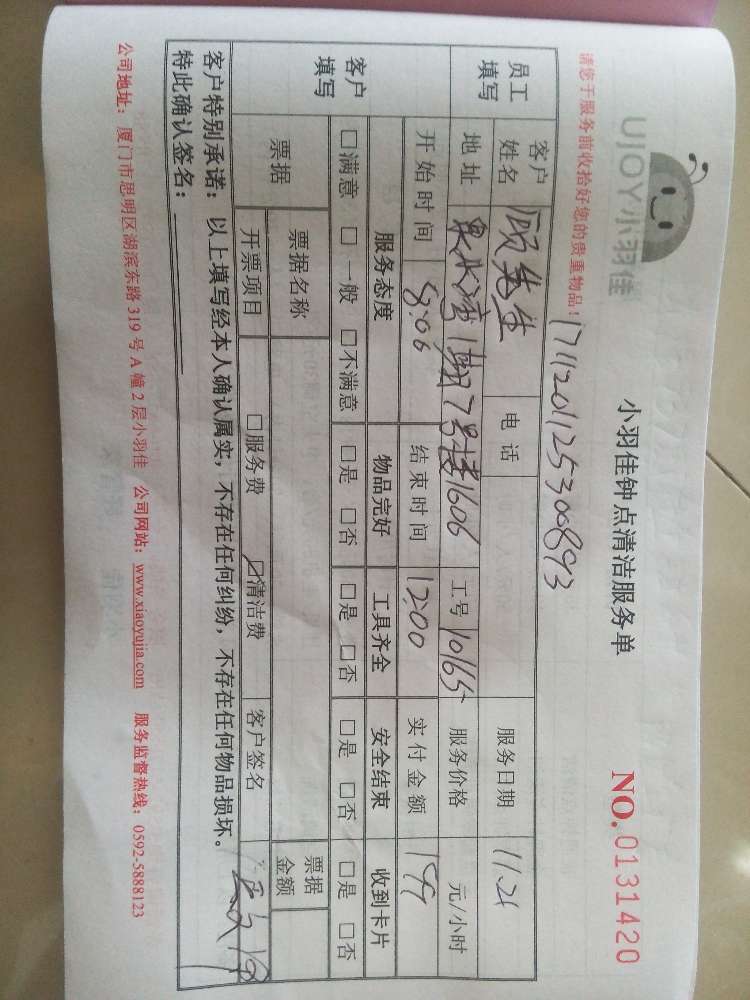 UJOY小羽佳
小羽佳钟点清洁服务单
NO.0131420
请您于服务前收拾好您的贵重物品！
171120112530893
员工填写
客户姓名 顾先生 电话 服务日期 11.21
地址 泉水湾1期7号楼1606 工号 10165 服务价格 元/小时
开始时间 8:06 结束时间 12:00 实付金额
客户填写
服务态度 物品完好 工具齐全 安全结束 收到卡片
□满意 □一般 □不满意 □是 □否 □是 □否 □是 □否 □是 □否
票据 票据名称 票据金额
开票项目 □服务费 □清洁费 客户签名
客户特别承诺：以上填写经本人确认属实，不存在任何纠纷，不存在任何物品损坏。
特此确认签名：
公司地址：厦门市思明区湖滨东路 319 号 A 幢 2 层小羽佳 公司网站：www.xiaoyujia.com 服务监督热线：0592-5888123